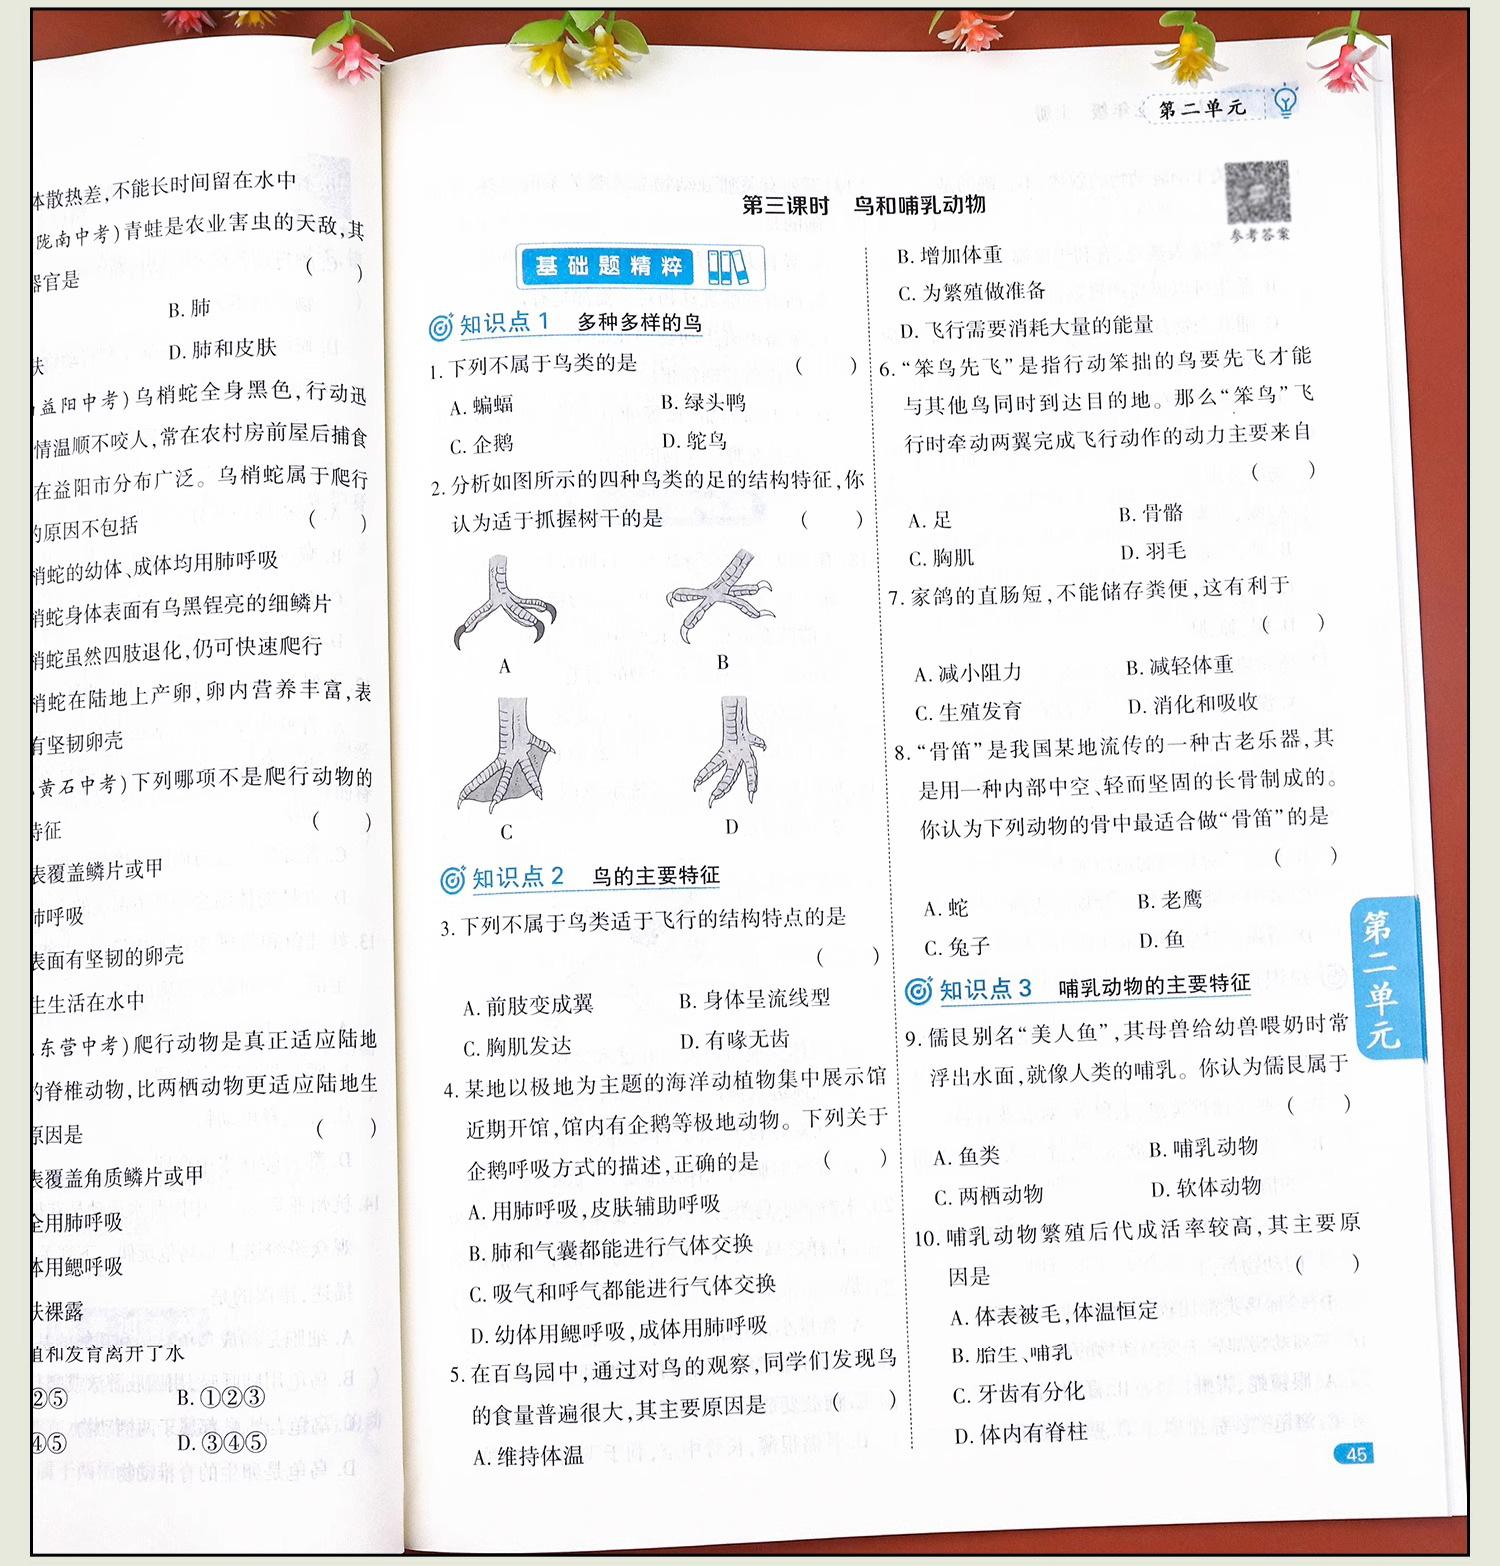 体散热差,不能长时间留在水中
陇南中考)青蛙是农业害虫的天敌,其
器官是 ( )
B. 肺
肤 D. 肺和皮肤
益阳中考)乌梢蛇全身黑色,行动迅
情温顺不咬人,常在农村房前屋后捕食
在益阳市分布广泛。乌梢蛇属于爬行
的原因不包括 ( )
梢蛇的幼体、成体均用肺呼吸
梢蛇身体表面有乌黑锃亮的细鳞片
梢蛇虽然四肢退化,仍可快速爬行
梢蛇在陆地上产卵,卵内营养丰富,表
有坚韧卵壳
黄石中考)下列哪项不是爬行动物的
特征 ( )
表覆盖鳞片或甲
肺呼吸
表面有坚韧的卵壳
生生活在水中
东营中考)爬行动物是真正适应陆地
的脊椎动物,比两栖动物更适应陆地生
原因是 ( )
表覆盖角质鳞片或甲
全用肺呼吸
体用鳃呼吸
肤裸露
殖和发育离开了水
②⑤ B. ①②③
④⑤ D. ③④⑤
第二单元
参考答案
第三课时 鸟和哺乳动物
基础题精粹
知识点1 多种多样的鸟
1. 下列不属于鸟类的是 ( )
A. 蝙蝠 B. 绿头鸭
C. 企鹅 D. 鸵鸟
2. 分析如图所示的四种鸟类的足的结构特征,你
认为适于抓握树干的是 ( )
A B
C D
知识点2 鸟的主要特征
3. 下列不属于鸟类适于飞行的结构特点的是
( )
A. 前肢变成翼 B. 身体呈流线型
C. 胸肌发达 D. 有喙无齿
4. 某地以极地为主题的海洋动植物集中展示馆
近期开馆,馆内有企鹅等极地动物。下列关于
企鹅呼吸方式的描述,正确的是 ( )
A. 用肺呼吸,皮肤辅助呼吸
B. 肺和气囊都能进行气体交换
C. 吸气和呼气都能进行气体交换
D. 幼体用鳃呼吸,成体用肺呼吸
5. 在百鸟园中,通过对鸟的观察,同学们发现鸟
的食量普遍很大,其主要原因是 ( )
A. 维持体温
B. 增加体重
C. 为繁殖做准备
D. 飞行需要消耗大量的能量
6. “笨鸟先飞”是指行动笨拙的鸟要先飞才能
与其他鸟同时到达目的地。那么“笨鸟”飞
行时牵动两翼完成飞行动作的动力主要来自
( )
A. 足 B. 骨骼
C. 胸肌 D. 羽毛
7. 家鸽的直肠短,不能储存粪便,这有利于
( )
A. 减小阻力 B. 减轻体重
C. 生殖发育 D. 消化和吸收
8. “骨笛”是我国某地流传的一种古老乐器,其
是用一种内部中空、轻而坚固的长骨制成的。
你认为下列动物的骨中最适合做“骨笛”的是
( )
A. 蛇 B. 老鹰
C. 兔子 D. 鱼
知识点3 哺乳动物的主要特征
9. 儒艮别名“美人鱼”,其母兽给幼兽喂奶时常
浮出水面,就像人类的哺乳。你认为儒艮属于
( )
A. 鱼类 B. 哺乳动物
C. 两栖动物 D. 软体动物
10. 哺乳动物繁殖后代成活率较高,其主要原
因是 ( )
A. 体表被毛,体温恒定
B. 胎生、哺乳
C. 牙齿有分化
D. 体内有脊柱
第二单元
45